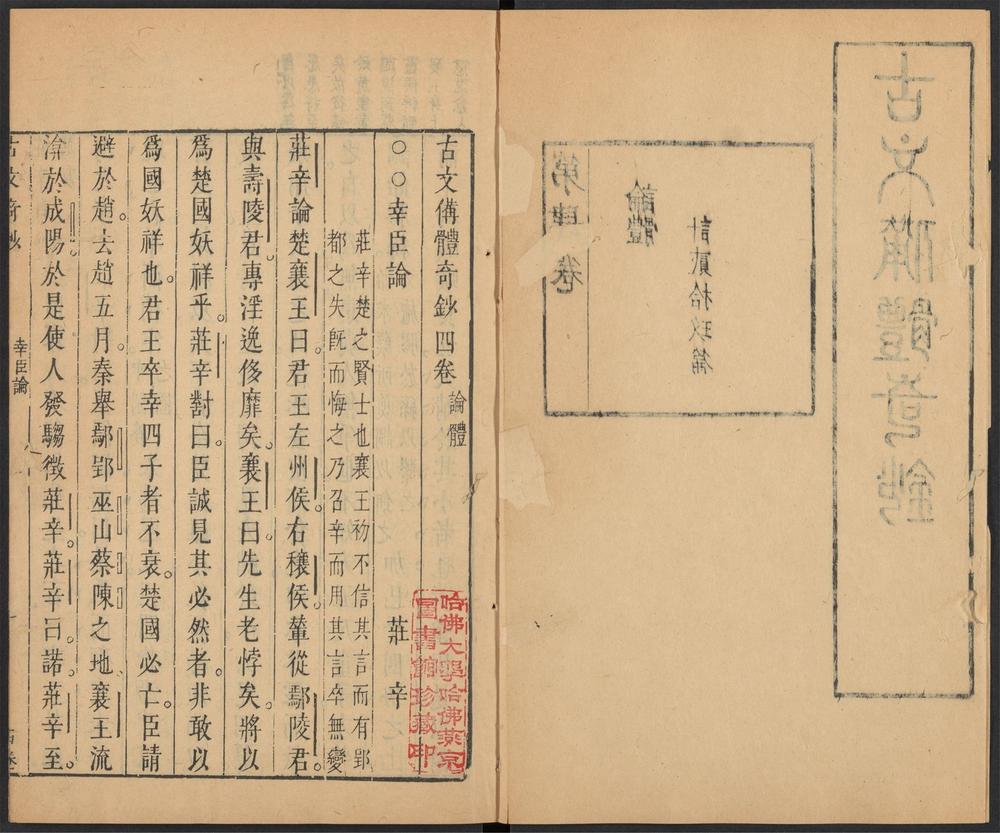 古文備體奇鈔
第肆卷
論體
計貳拾玖篇
古文備體奇鈔四卷 論體
○○幸臣論 莊辛
莊辛楚之賢士也襄王初不信其言而有郢
都之失旣而悔之乃召辛而用其言卒無變
莊辛論楚襄王曰君王左州侯。右穰侯。輦從鄢陵君。
與壽陵君。專淫逸侈靡矣。襄王曰。先生老悖矣。將以
爲楚國妖祥乎。莊辛對曰。臣誠見其必然者。非敢以
爲國妖祥也。君王卒幸四子者不衰。楚國必亡。臣請
避於趙。去趙五月。秦舉鄢郢巫山蔡陳之地襄王流
渰於成陽。於是使人發騶徵莊辛。莊辛曰。諾。莊辛至。
古文奇鈔
幸臣論
哈佛大學哈佛燕京
圖書館珍藏印